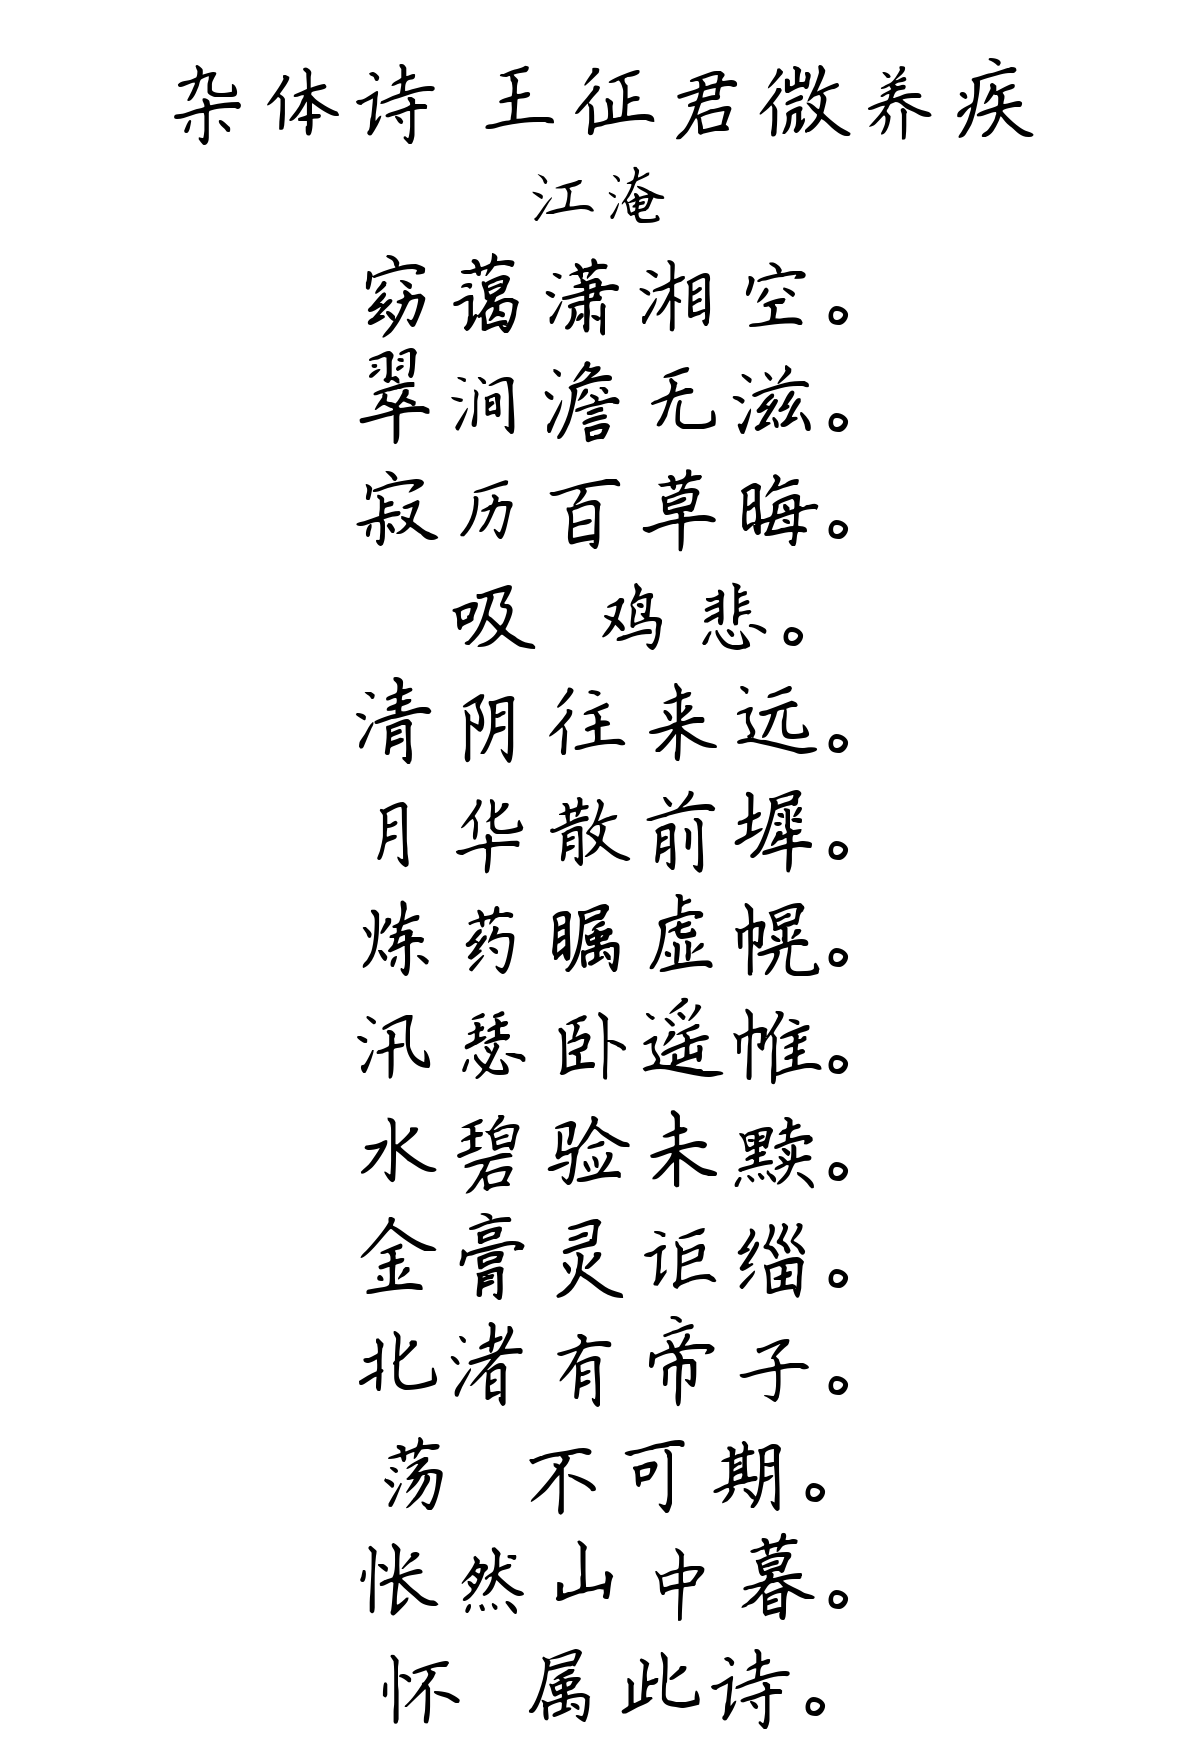 杂体诗 王征君微养疾
江淹
窈蔼潇湘空。
翠涧澹无滋。
寂历百草晦。
吸 鸡悲。
清阴往来远。
月华散前墀。
炼药瞩虚幌。
汛瑟卧遥帷。
水碧验未黩。
金膏灵讵缁。
北渚有帝子。
荡 不可期。
怅然山中暮。
怀 属此诗。